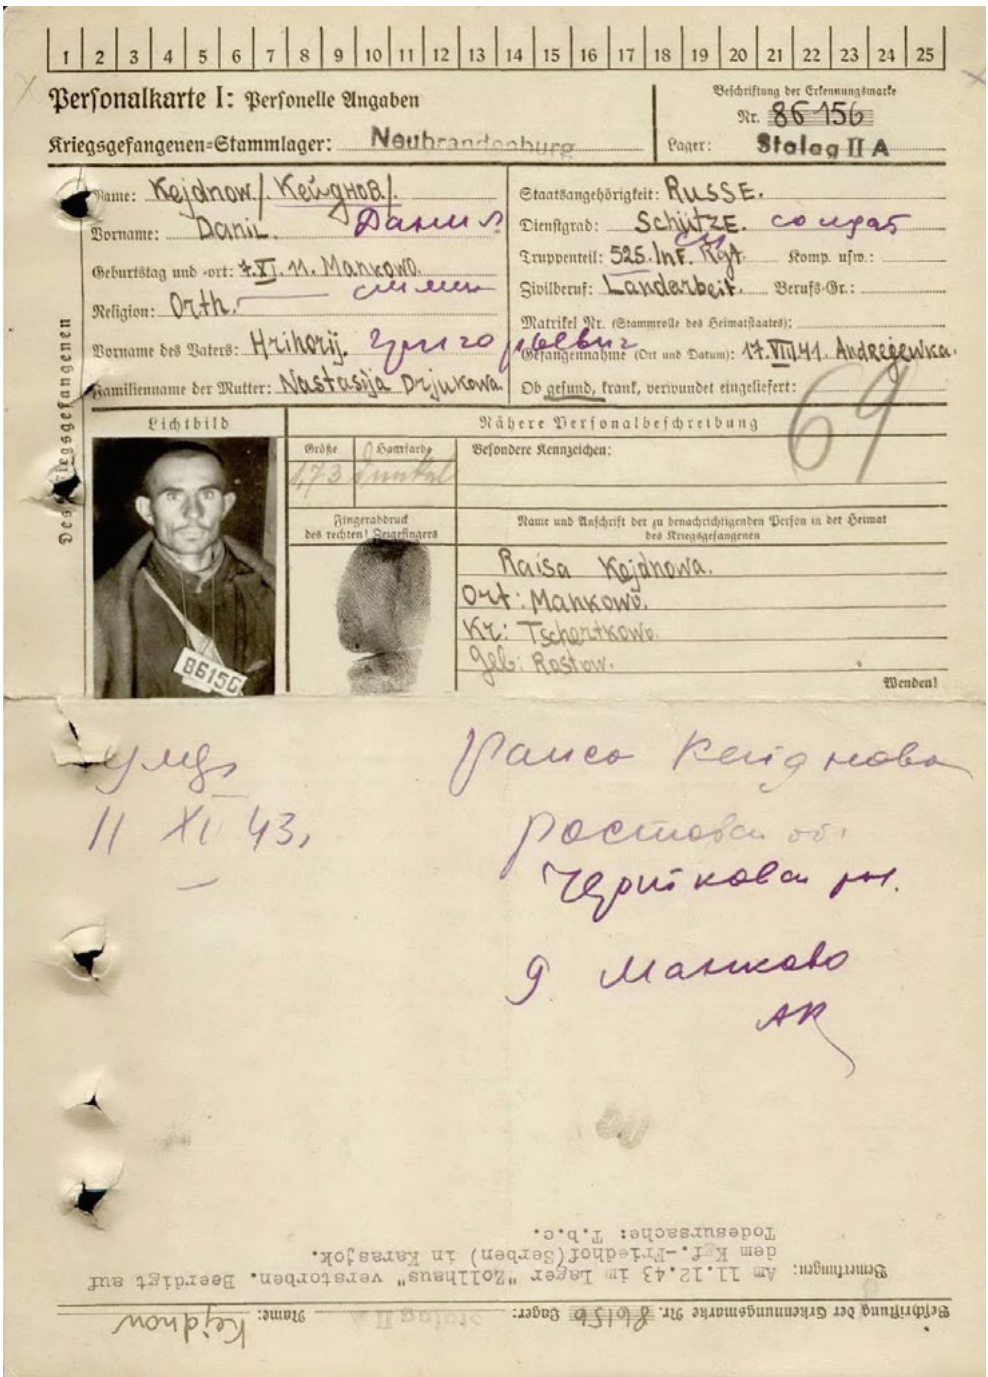 1 2 3 4 5 6 7 8 9 10 11 12 13 14 15 16 17 18 19 20 21 22 23 24 25
Personalkarte I: Personelle Angaben
Kriegsgefangenen-Stammlager: Neubrandenburg
Beschriftung der Erkennungsmarke
Nr. 86156
Lager: Stalag II A
Des Kriegsgefangenen
Name: Kejdnow./. Кейднов./.
Vorname: Danil. Данил
Geburtstag und -ort: 7.XI.11. Mankowo.
Religion: Orth.
Vorname des Vaters: Hrihorij. Григорьевич
Familienname der Mutter: Nastasija Drjukowa.
Staatsangehörigkeit: Russe.
Dienstgrad: Schütze. солдат
Truppenteil: 525. Inf. Rgt. Komp. usw.:
Zivilberuf: Landarbeit. Berufs-Gr.:
Matrikel Nr. (Stammrolle des Heimatstaates):
Gefangennahme (Ort und Datum): 17.VIII.41. Andrejewka.
Ob gesund, krank, verwundet eingeliefert:
69
Lichtbild
Nähere Personalbeschreibung
Größe Haarfarbe Besondere Kennzeichen:
1,73 dunkel
Fingerabdruck
des rechten! Zeigefingers
Name und Anschrift der zu benachrichtigenden Person in der Heimat
des Kriegsgefangenen
Raisa Kejdnowa.
Ort: Mankowo.
Kr: Tschertkowo.
Geb: Rostow.
86156
Wenden!
умер
11 XI 43.
Раиса Кейднова
Ростовская об.
Чертковск рн.
д. Манково
АК
Beschriftung der Erkennungsmarke Nr. 86156 Lager: Stalag II A Name: Kejdnow
Bemerkungen: Am 11.12.43 im Lager "Zollhaus" verstorben. Beerdigt auf
dem Kgf.-Friedhof(Serben) in Karasjok.
Todesursache: T.b.c.